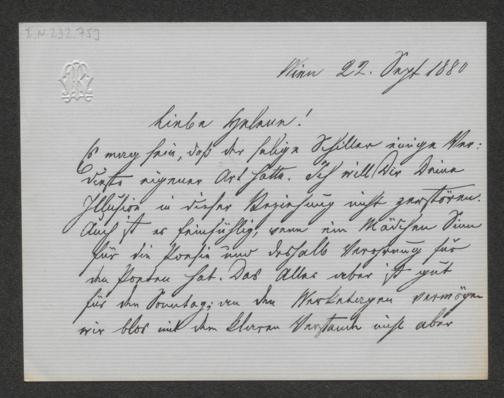 I.N. 232.753
Wien 22. Sept 1880
Liebe Helene!
Es mag sein, daß der selige Schiller einige Ver=
dienste eigener Art hatte. Ich will Dir Deine
Illusion in dieser Beziehung nicht zerstören.
Auch ist es feinfühlig, wenn ein Mädchen Sinn
für die Poesie und deshalb Verehrung für
den Poeten hat. Das Alles aber ist gut
für den Sonntag; an den Werketagen vermögen
wir blos mit dem klaren Verstande nicht aber